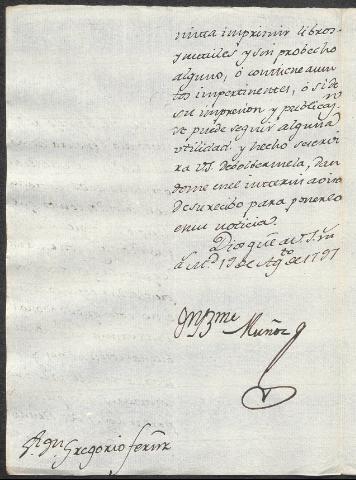 mita imprimir libros
ynutiles y sin probecho
alguno, ó contiene asun
tos impertinentes, ó si de
su impresion y publicaⁿ.
se puede seguir alguna
utilidad y hecho se servi
ra V.S. debolbermela, dan
dome en el interin aviso
de su recibo para ponerlo
en su noticia.
Dios gue. a V.S. m
Md. 19 de Agto. de 1797
Muñoz
Sr. Dn. Gregorio